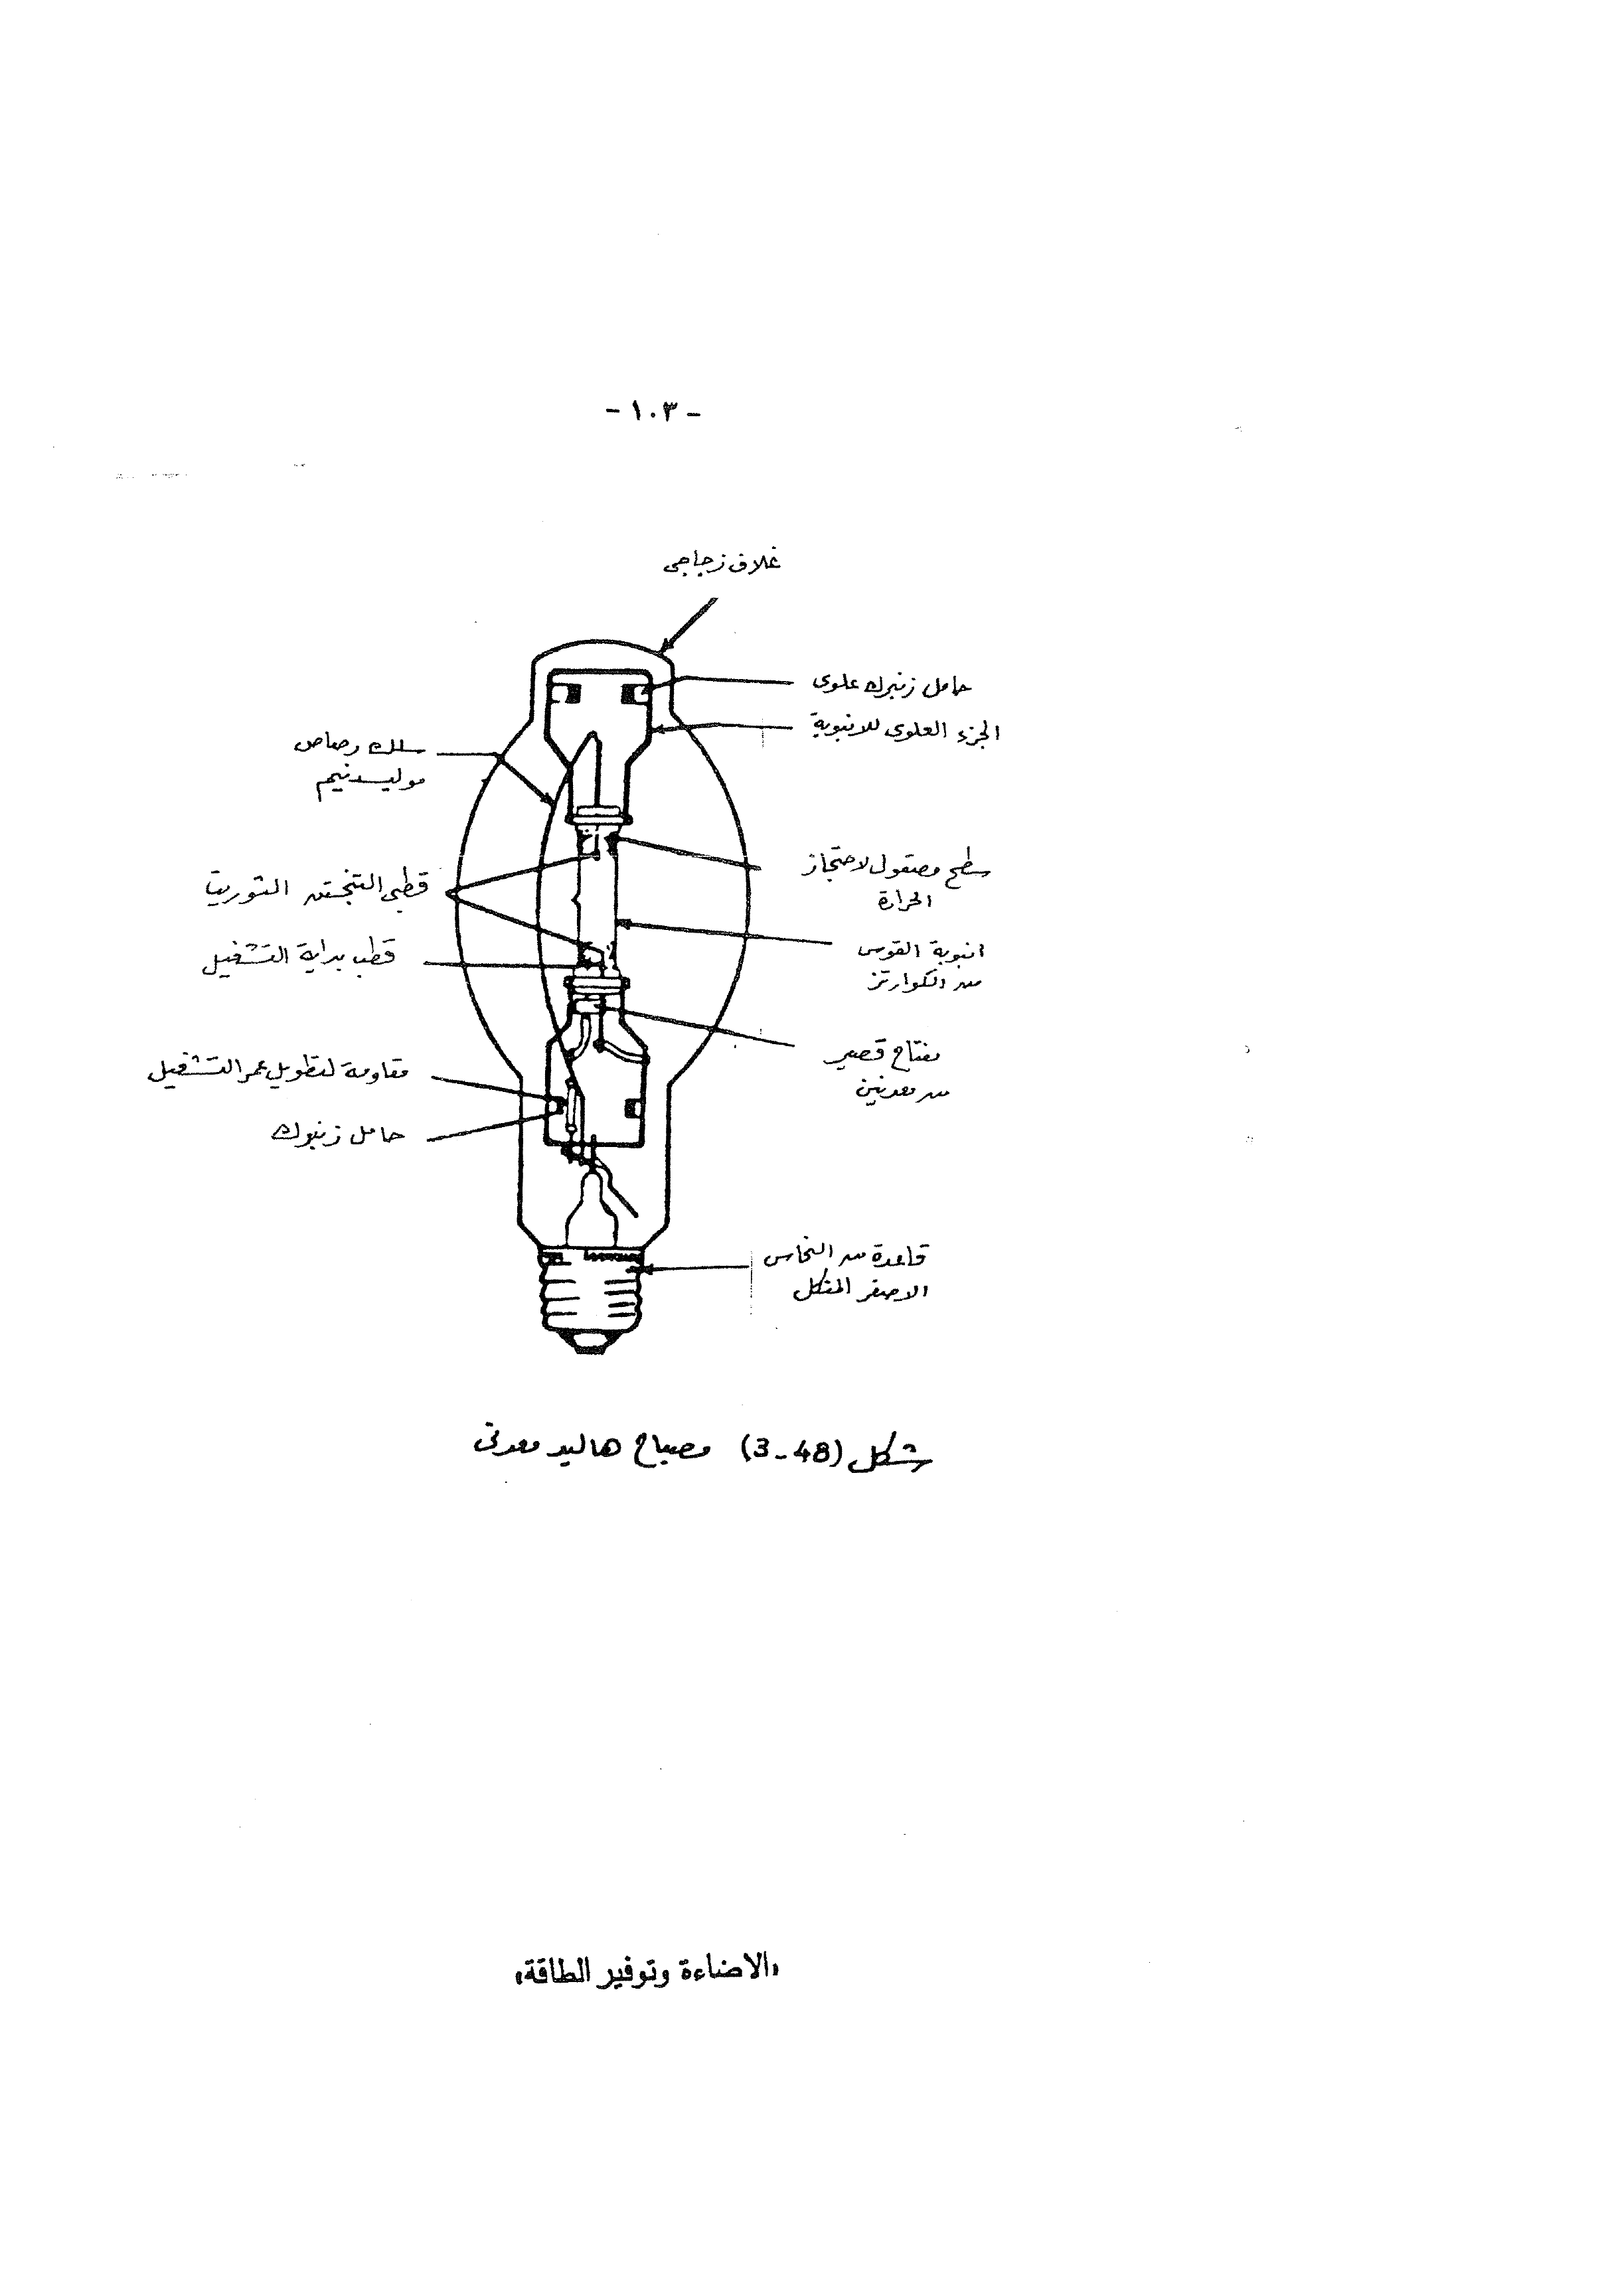 - ١٠٣ -
غلاف زجاجى
حامل زنبرك علوى
الجزء العلوى للانبوبة
سلك رصاص
موليبدنيم
سطح مصقول لاحتجاز
الحرارة
قطبى التنجستن الثوريتا
انبوبة القوس
من الكوارتز
قطب بداية التشغيل
مفتاح قصير
من معدنين
مقاومة لتطويل عمر التشغيل
حامل زنبرك
قاعدة من النحاس
الاصفر المنكل
شكل (3-48) مصباح هاليد معدنى
«الاضاءة وتوفير الطاقة»